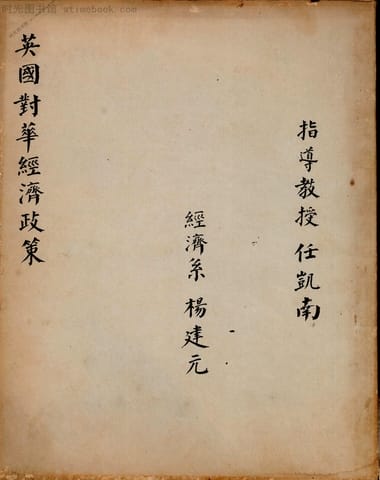 时光图书馆 - atimebook.com
指導教授 任凱南
經濟系 楊建元
英國對華經濟政策